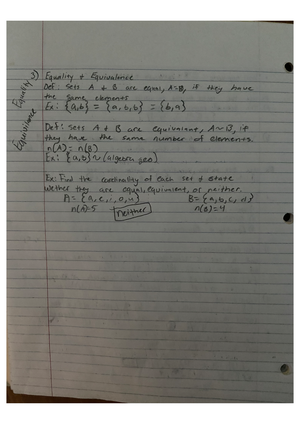 Equality &
Equivalence
3) Equality & Equivalence
Def: Sets A & B are equal, A=B, if they have
the same elements
Ex: {a,b} = {a,b,b} = {b,a}
Def: Sets A & B are equivalent, A~B, if
they have the same number of elements.
n(A) = n(B)
Ex: {a,b} ~ {algebra,
Ex: Find the cardinality of each set & state
wether they are equal, equivalent, or neither.
A = {a, e, i, o, u} B = {a, b, c, d}
n(A)=5 neither n(B)=4